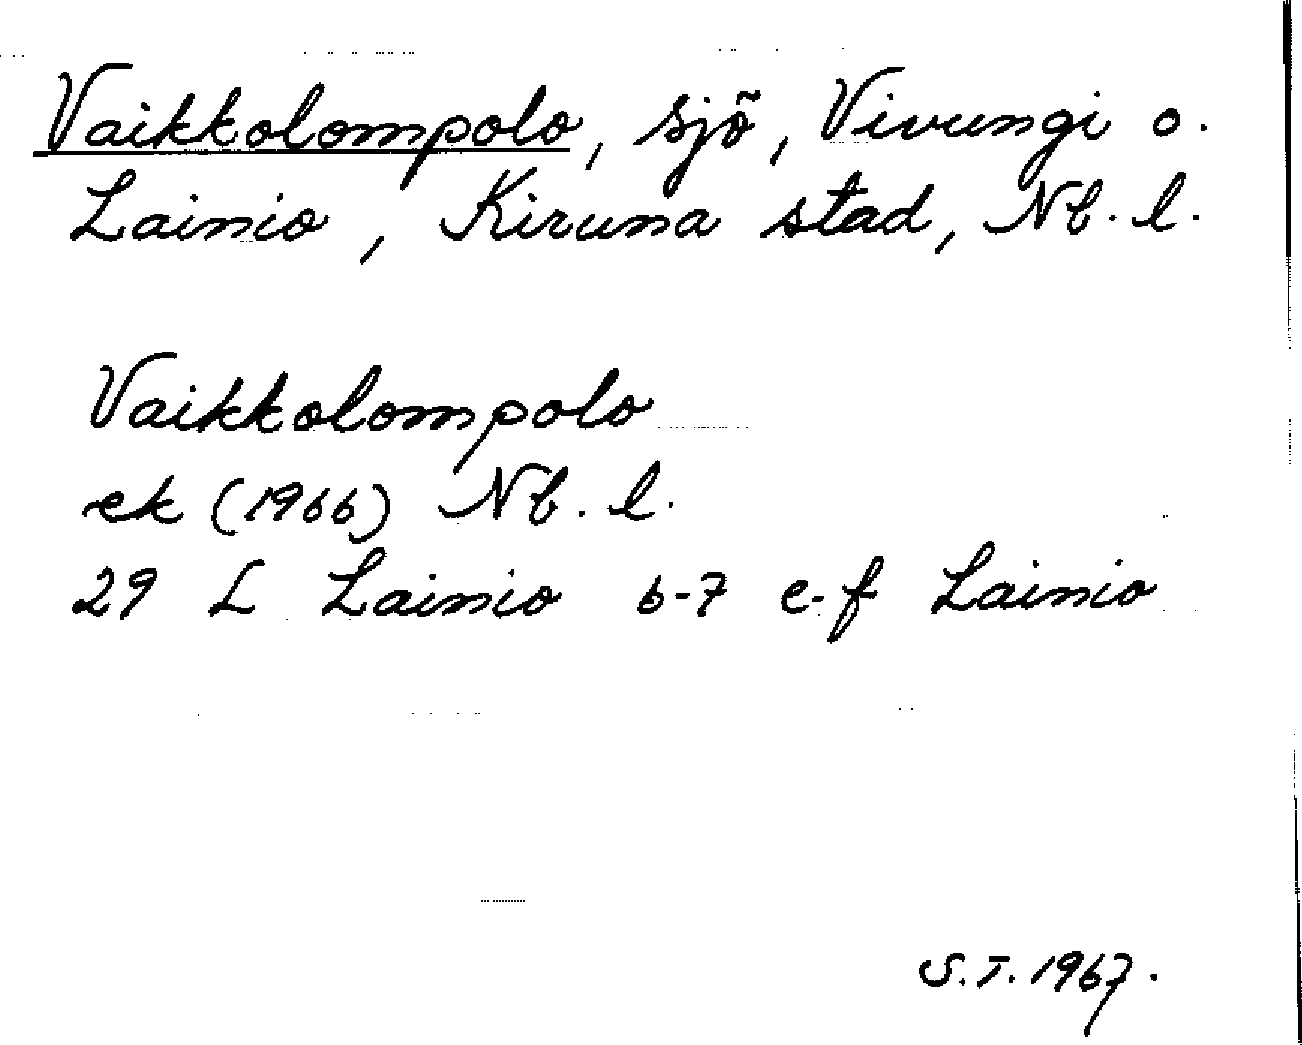 Vaikkolompolo, sjö, Vivungi o.
Lainio, Kiruna stad, Nb. l.
Vaikkolompolo
ek (1966) Nb. l.
29 L Lainio 6-7 e-f Lainio
S.T. 1967.